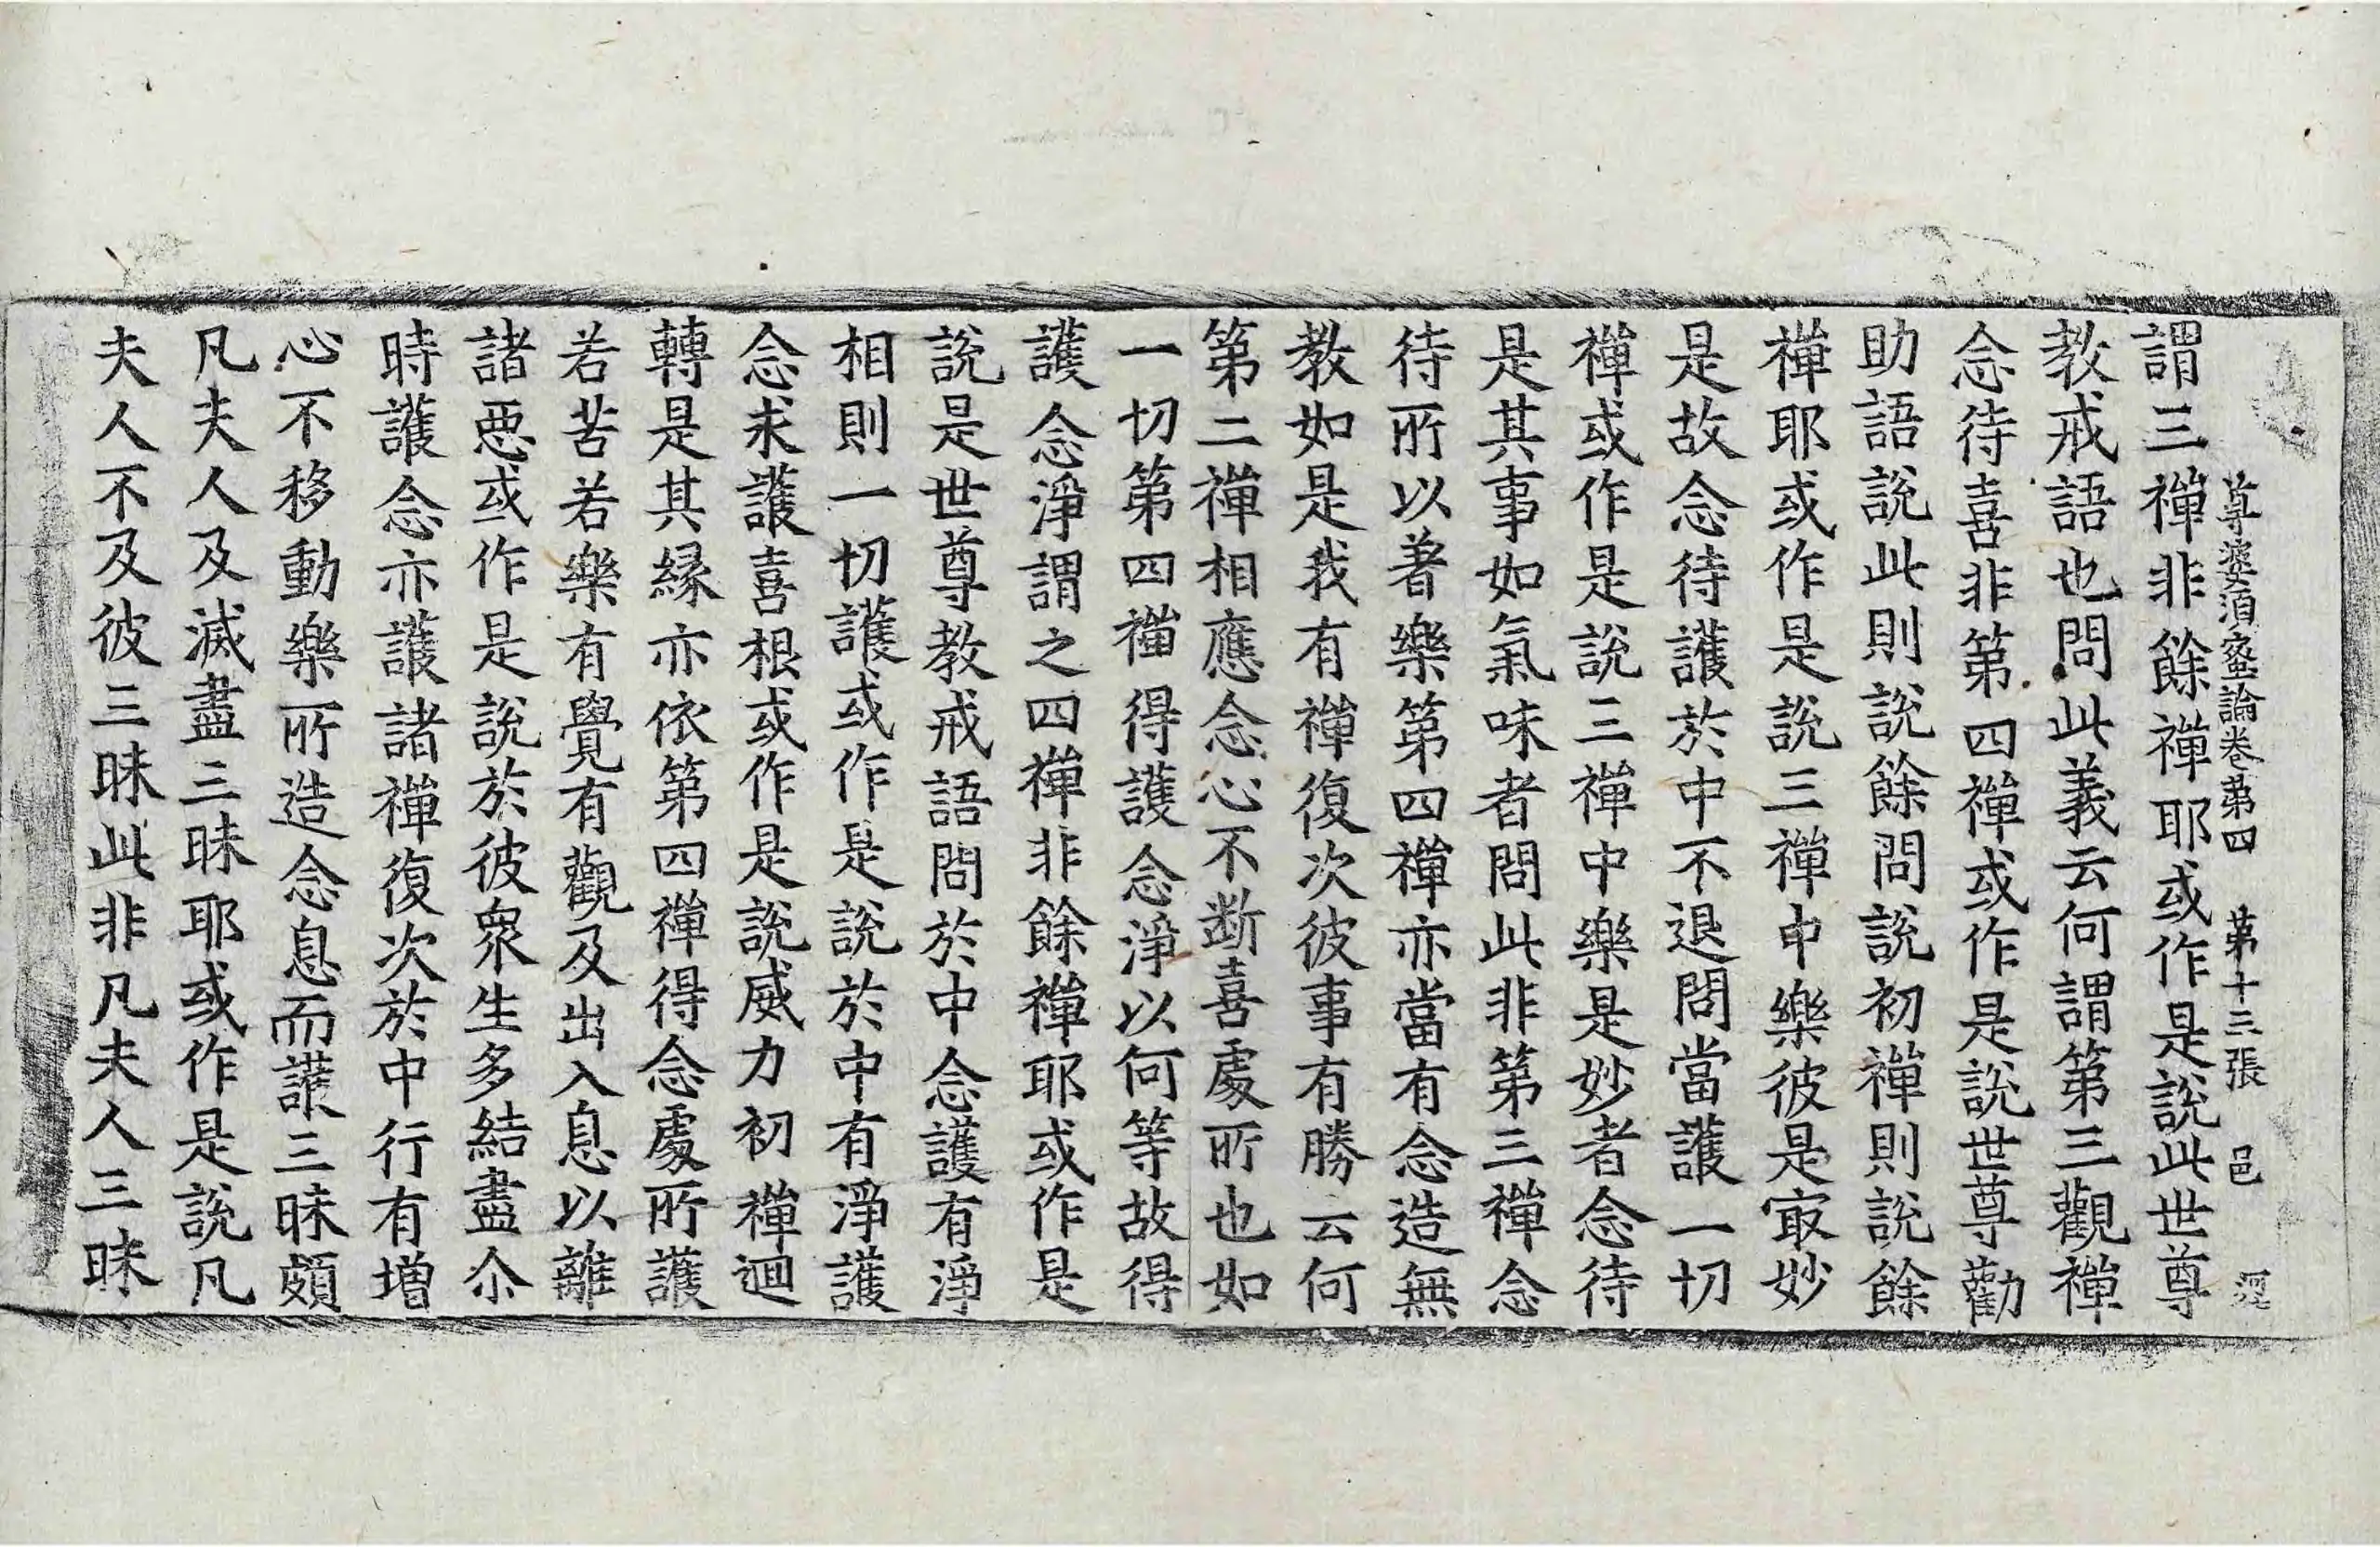 尊婆須蜜論卷第四　第十三張　邑
謂三禪非餘禪耶或作是說此世尊
教戒語也問此義云何謂第三觀禪
念待喜非第四禪或作是說世尊勸
助語說此則說餘問說初禪則說餘
禪耶或作是說三禪中樂彼是㝡妙
是故念待護於中不退問當護一切
禪或作是說三禪中樂是妙者念待
是其事如氣味者問此非第三禪念
待所以著樂第四禪亦當有念造無
教如是我有禪復次彼事有勝云何
第二禪相應念心不断喜處所也如
一切第四禪得護念淨以何等故得
護念淨謂之四禪非餘禪耶或作是
說是世尊教戒語問於中念護有淨
相則一切護或作是說於中有淨護
念求護喜根或作是說威力初禪迴
轉是其緣亦依第四禪得念處所護
若苦若樂有覺有觀及出入息以離
諸惡或作是說於彼眾生多結盡尒
時護念亦護諸禪復次於中行有增
心不移動樂所造念息而護三昧頗
凡夫人及滅盡三昧耶或作是說凡
夫人不及彼三昧此非凡夫人三昧